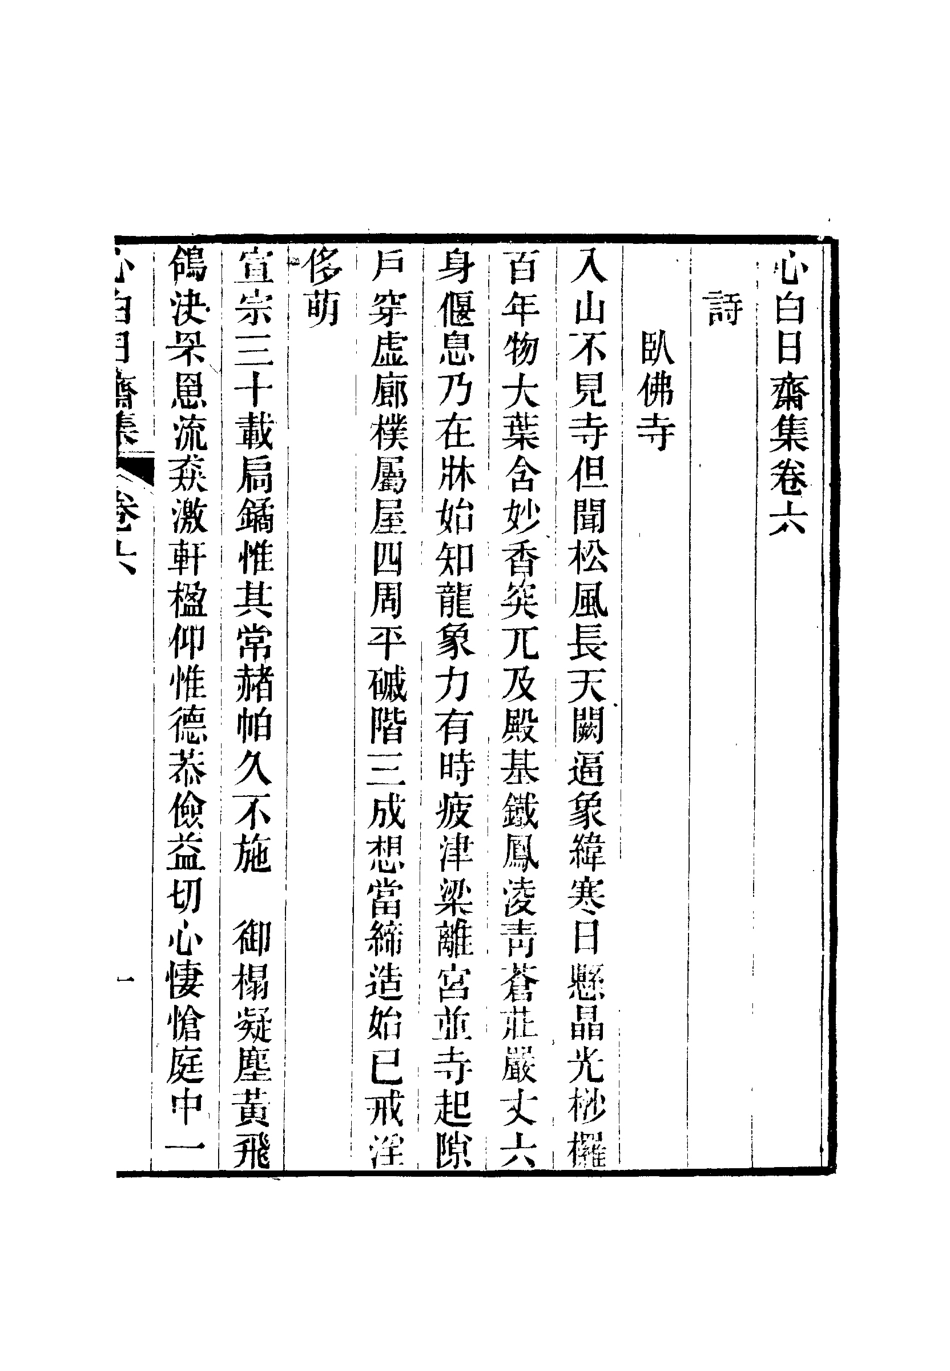 心白日齋集卷六
詩
臥佛寺
入山不見寺但聞松風長天闕逼象緯寒日懸晶光桫欏
百年物大葉含妙香突兀及殿基鐵鳳凌靑蒼莊嚴丈六
身偃息乃在牀始知龍象力有時疲津梁離宮並寺起隙
戶穿虛廊樸屬屋四周平磩階三成想當締造始已戒淫
侈萌
宣宗三十載扃鐍惟其常赭帕久不施　御榻凝塵黃飛
鴿決罘罳流猋激軒楹仰惟德恭儉益切心悽愴庭中一
心白日齋集　卷六　一